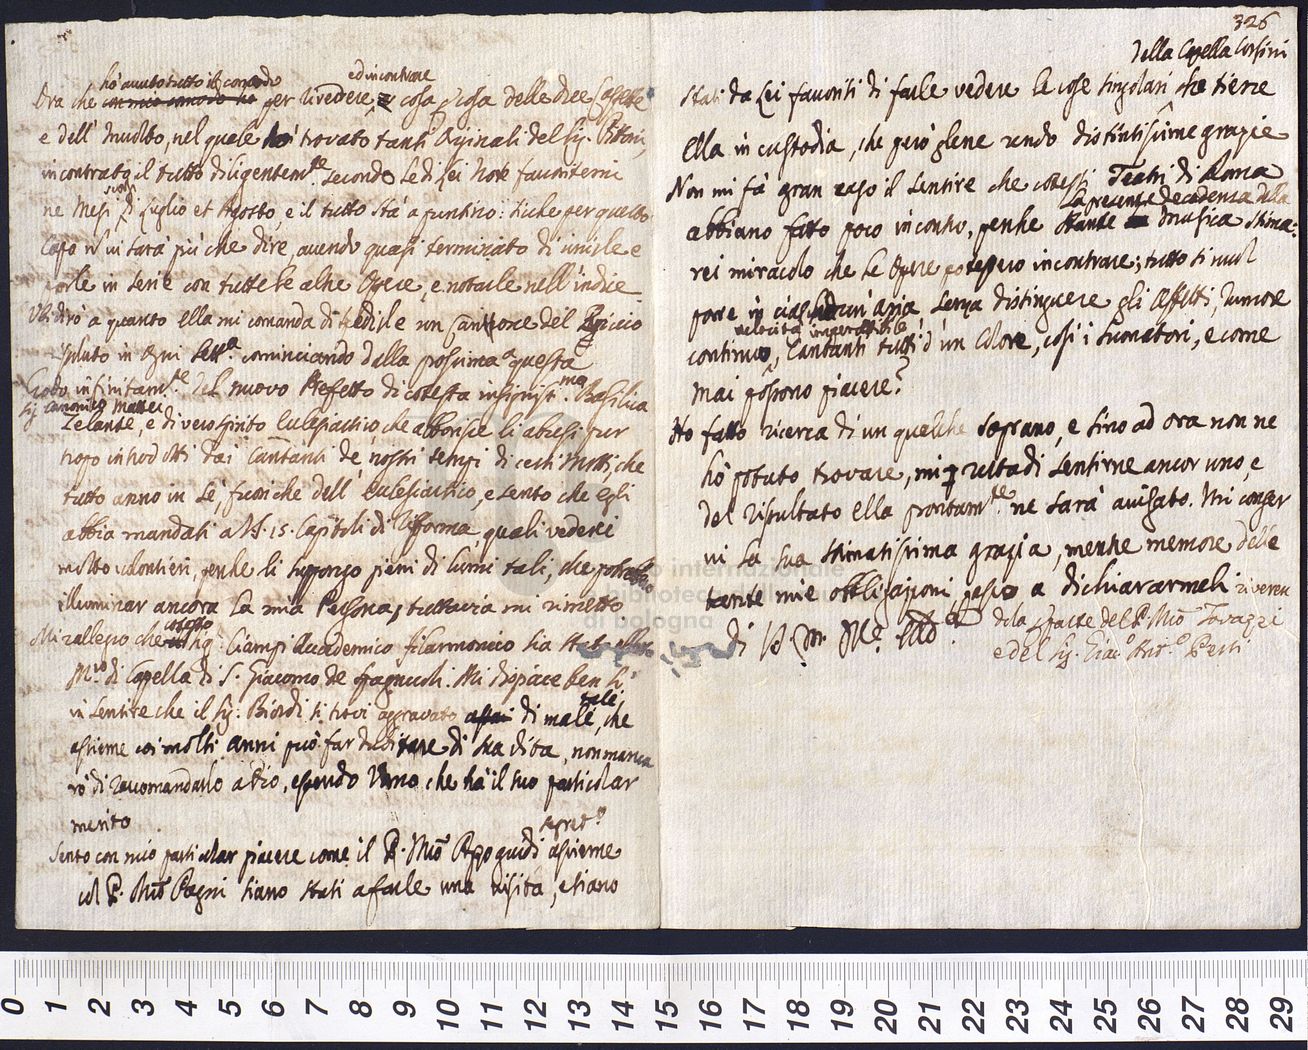 326
ho' avuto tutto il comodo
ed incontrare
Ora che con mio comodo ho per rivedere, e cosa p cosa delle due Cassette
e dell' Involto, nel quale ho' trovato tanti Originali del Sig. Pittoni,
incontrato il tutto diligentem.te secondo le di Lei Note favoritemi
ne Mesi di Luglio et Agosto, e il tutto sta' a puntino: sicche per questo
Capo n vi sara' più che dire, avendo quasi terminato di unirle e
porle in serie con tutte le altre Opere, e notarle nell' indice
Ubidirò a quanto ella mi comanda di spedirle un Cantore del
soluto in ogni Sett.a cominciando dalla prossima a questa
Godo infinitam.te del nuovo Prefetto di cotesta insignissi.ma Basilica
Sig. Canonico Mattei
Zelante, e di vero spirito Eclesiastico, che abborisce li abusi pur
tropo introdotti dai Cantanti de nostri tempi di certi Motti, che
tutto anno in se, fuori che dell' Eclesiastico, e sento che egli
abbia mandati a VS. 15. Capitoli di Riforma quali vederei
molto volontieri, perche li suppongo pieni di lumi tali, che potrebbero
illuminar ancora la mia Persona, tuttavia mi rimetto
Mi rallegro che cotesto Sig. Ciampi Accademico Filarmonico sia stato eletto
M.ro di Capella di S. Giacomo de Spagnuoli. Mi dispiace ben sì
in sentire che il Sig. Biordi si trovi aggravato assai di male tale, che
assieme coi molti anni può far dubitare di sua vita, non manca
rò di racomandarlo a Dio, essendo Uomo che ha' il suo particolar
merito.
segret.o
Sento con mio particolar piacere come il P. Mro assieme
col P. Mro Pagni siano stati a farle una visita, e siano
della Capella Corsini
stati da Lei favoriti di farle vedere le cose singolari che tiene
Ella in custodia, che però glene rendo distintissime grazie
Non mi fà gran caso il sentire che cotesti Teatri di Roma
la presente decadenza della
abbiano fatto poco incontro, perche stante Musica stima-
rei miracolo che le Opere potessero incontrare; tutto si vuol
porre in ciascun' aria senza distinguere gli Affetti, rumore
velocità insoffribile
continuo, Cantanti tutti d' un Colore, così i suonatori, e come
mai possono piacere?
Ho fatto ricerca di un qualche soprano, e sino ad ora non ne
hò potuto trovare, mi resta di sentirne ancor uno, e
del risultato ella prontam.te ne sarà avisato. Mi conser
vi la sua stimatissima grazia, mentre memore delle
tante mie obbligazioni passo a dichiararmeli
di V. M. Rda
dila p parte del P. Mro
e del Sig. Giac.o Ant.o Perti